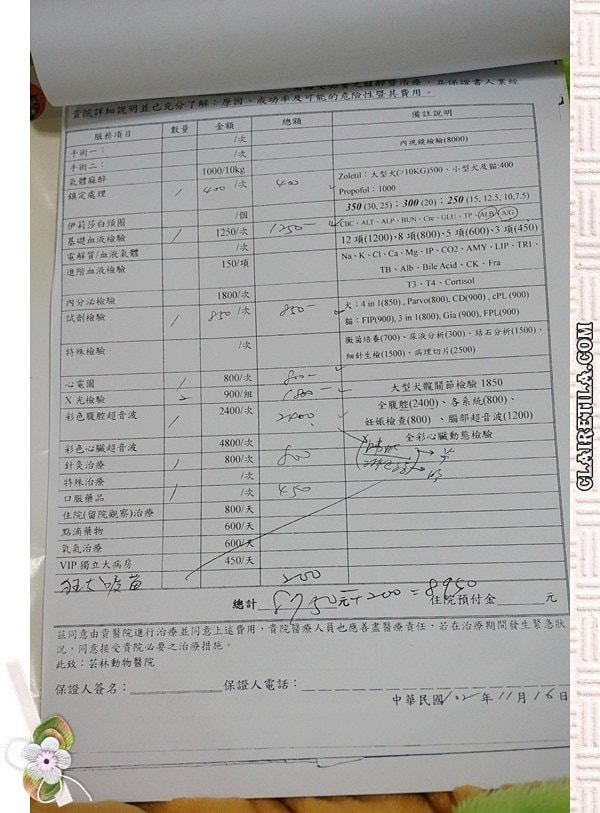 貴院詳細說明並已充分了解：原因、成功率及可能的危險性暨其費用。
服務項目 數量 金額 總額 備註說明
手術一： /次 內視鏡檢驗(8000)
手術二： /次
氣體麻醉 1000/10kg Zoletil：大型犬(>10KG)500、小型犬及貓:400
鎮定處理 1 400 /次 400 Propofol：1000
350 (30, 25)；300 (20)；250 (15, 12.5, 10,7.5)
伊莉莎白頭圈 /個
基礎血液檢驗 1 1250/次 1250- CBC、ALT、ALP、BUN、Cre、GLU、TP、ALB、A/G
12 項(1200)、8 項(800)、5 項(600)、3 項(450)
電解質/血液氣體 /次 Na、K、Cl、Ca、Mg、IP、CO2、AMY、LIP、TRI、
進階血液檢驗 150/項 TB、Alb、Bile Acid、CK、Fra
T3、T4、Cortisol
內分泌檢驗 1800/次
試劑檢驗 1 850 /次 850- 犬：4 in 1(850)，Parvo(800), CD(900)，cPL (900)
貓：FIP(900), 3 in 1(800), Gia (900), FPL(900)
特殊檢驗 /次 黴菌培養(700)、尿液分析(300)、結石分析(1500)、
細針生檢(1500)、病理切片(2500)
心電圖 1 800/次 800-
X 光檢驗 2 900/組 1800- 大型犬髖關節檢驗 1850
彩色腹腔超音波 2400/次 2400 全腹腔(2400)、各系統(800)、
妊娠檢查(800)、腦部超音波(1200)
彩色心臟超音波 4800/次 全彩心臟動態檢驗
針灸治療 1 800/次 800
特殊治療 /次
口服藥品 1 /次 450
住院(留院觀察)治療 800/天
點滴藥物 600/天
氧氣治療 600/天
VIP 獨立大病房 450/天
狂犬疫苗 200
總計 8750元+200=8950 住院預付金 元
茲同意由貴醫院進行治療並同意上述費用，貴院醫療人員也應善盡醫療責任，若在治療期間發生緊急狀
況，同意接受貴院必要之治療措施。
此致：芸林動物醫院
保證人簽名： 保證人電話：
中華民國102年11月16日
CLAIRETILA.COM